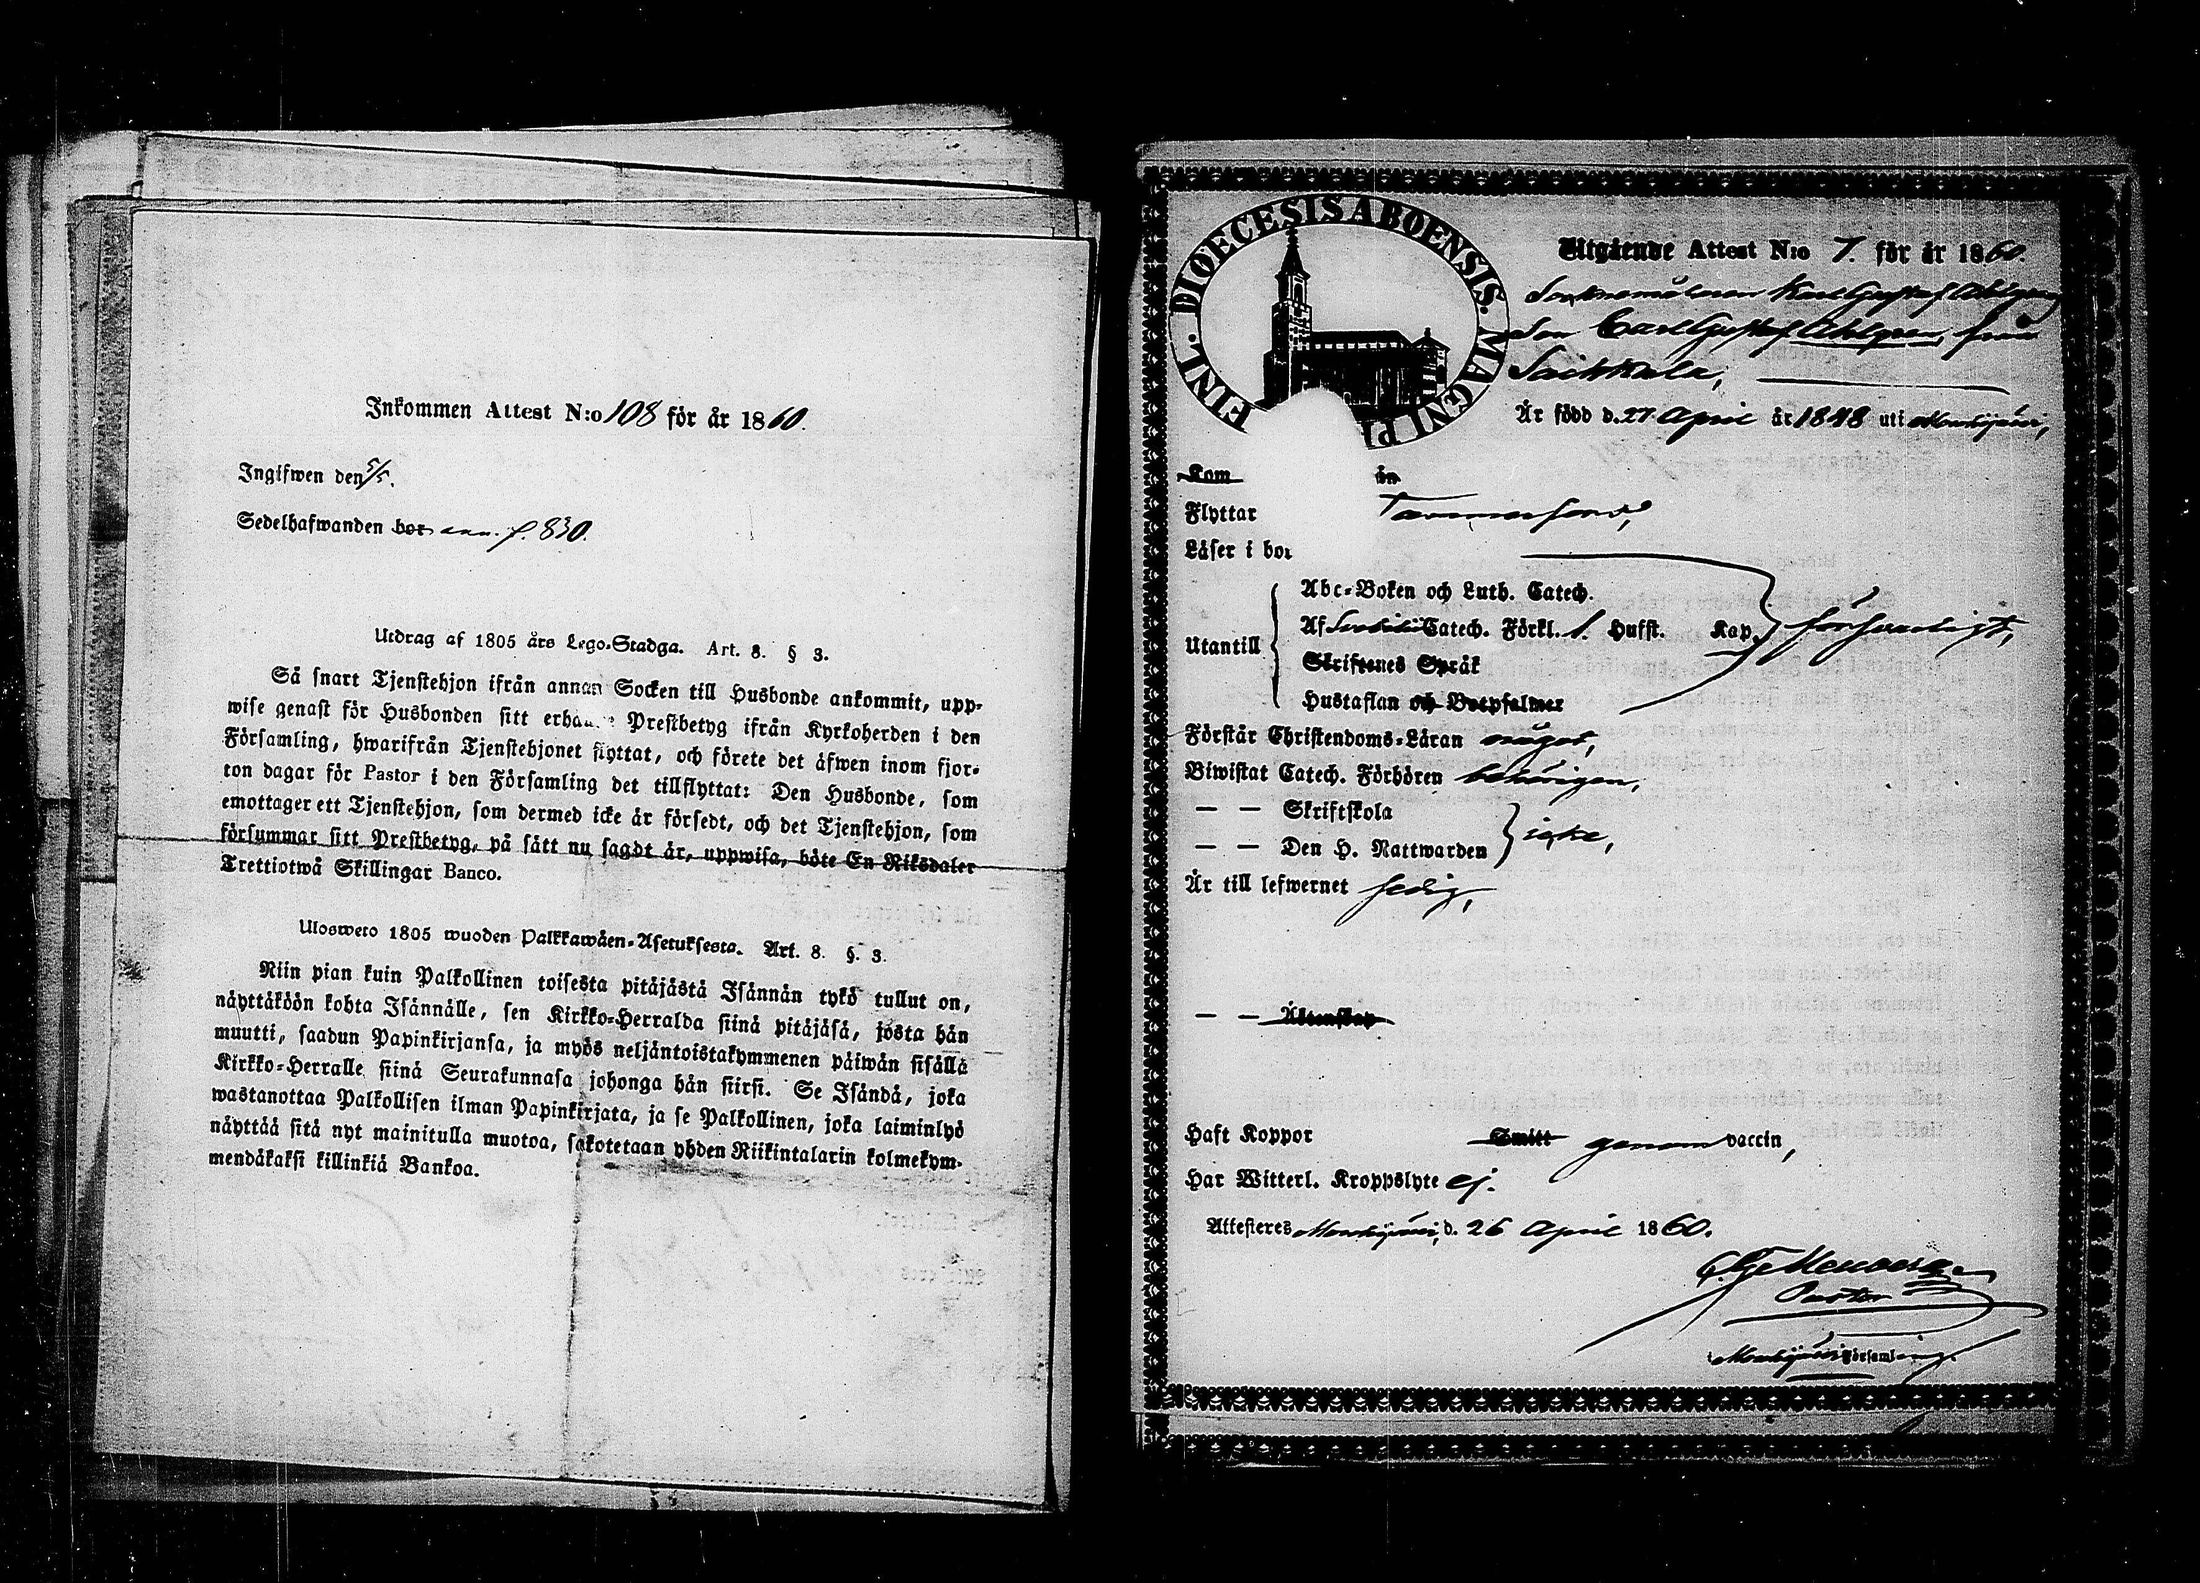 Inkommen Attest N:o 108 för år 1860.
Ingifwen den 5/5.
Sedelhafwanden bor ann. p. 830.
Utdrag af 1805 års Lego-Stadga. Art. 8. § 3.
Så snart Tjenstehjon ifrån annan Socken till Husbonde ankommit, upp-
wise genast för Husbonden sitt erha Prestbetyg ifrån Kyrkoherden i den
Församling, hwarifrån Tjenstehjonet flyttat, och förete det äfwen inom fjor-
ton dagar för Pastor i den Församling det tillflyttat: Den Husbonde, som
emottager ett Tjenstehjon, som dermed icke är försedt, och det Tjenstehjon, som
försummar sitt Prestbetyg, på sätt nu sagdt är, uppwisa, böte En Riksdaler
Trettiotwå Skillingar Banco.
Ulosweto 1805 wuoden Palkkawäen-Asetuksesta. Art. 8. §. 3.
Niin pian kuin Palkollinen toisesta pitäjästä Isännän tykö tullut on,
näyttäköön kohta Isännälle, sen Kirkko-Herralda siinä pitäjäsä, josta hän
muutti, saadun Papinkirjansa, ja myös neljäntoistakymmenen päiwän sisällä
Kirkko-Herralle siinä Seurakunnasa johonga hän siirsi. Se Isändä, joka
wastanottaa Palkollisen ilman Papinkirjata, ja se Palkollinen, joka laiminlyö
näyttää sitä nyt mainitulla muotoa, sakotetaan yhden Riikintalarin kolmekym-
mendäkaksi killinkiä Bankoa.
FINL. DIOECESIS ABOENSIS. MAGNI PI
Utgående Attest N:o 7. för år 1860.
Socknemålaren Karl Gustaf Ahlgren
Son Carl Gustaf Ahlgren, från
Saikkala,
Är född d. 27 April år 1848 uti Mouhijärvi,
Kom ån
Flyttar Tammerfors,
Läser i bok
Utantill
Abc-Boken och Luth. Catech.
Af Catech. Förkl. 1. Hufst. Kap.
försvarligt,
Skriftenes Språk
Hustaflan och Botpsalmer
Förstår Christendoms-Läran något,
Biwistat Catech. Förhören behörigen,
— — Skriftskola
— — Den H. Nattwarden icke,
Är till lefwernet sedig,
— — Äktenskap
Haft Koppor Smitt genom vaccin,
Har Witterl. Kroppslyte ej.
Attesteres Mouhijärvi, d. 26 April 1860.
Pastor
i Mouhijärvi församling.